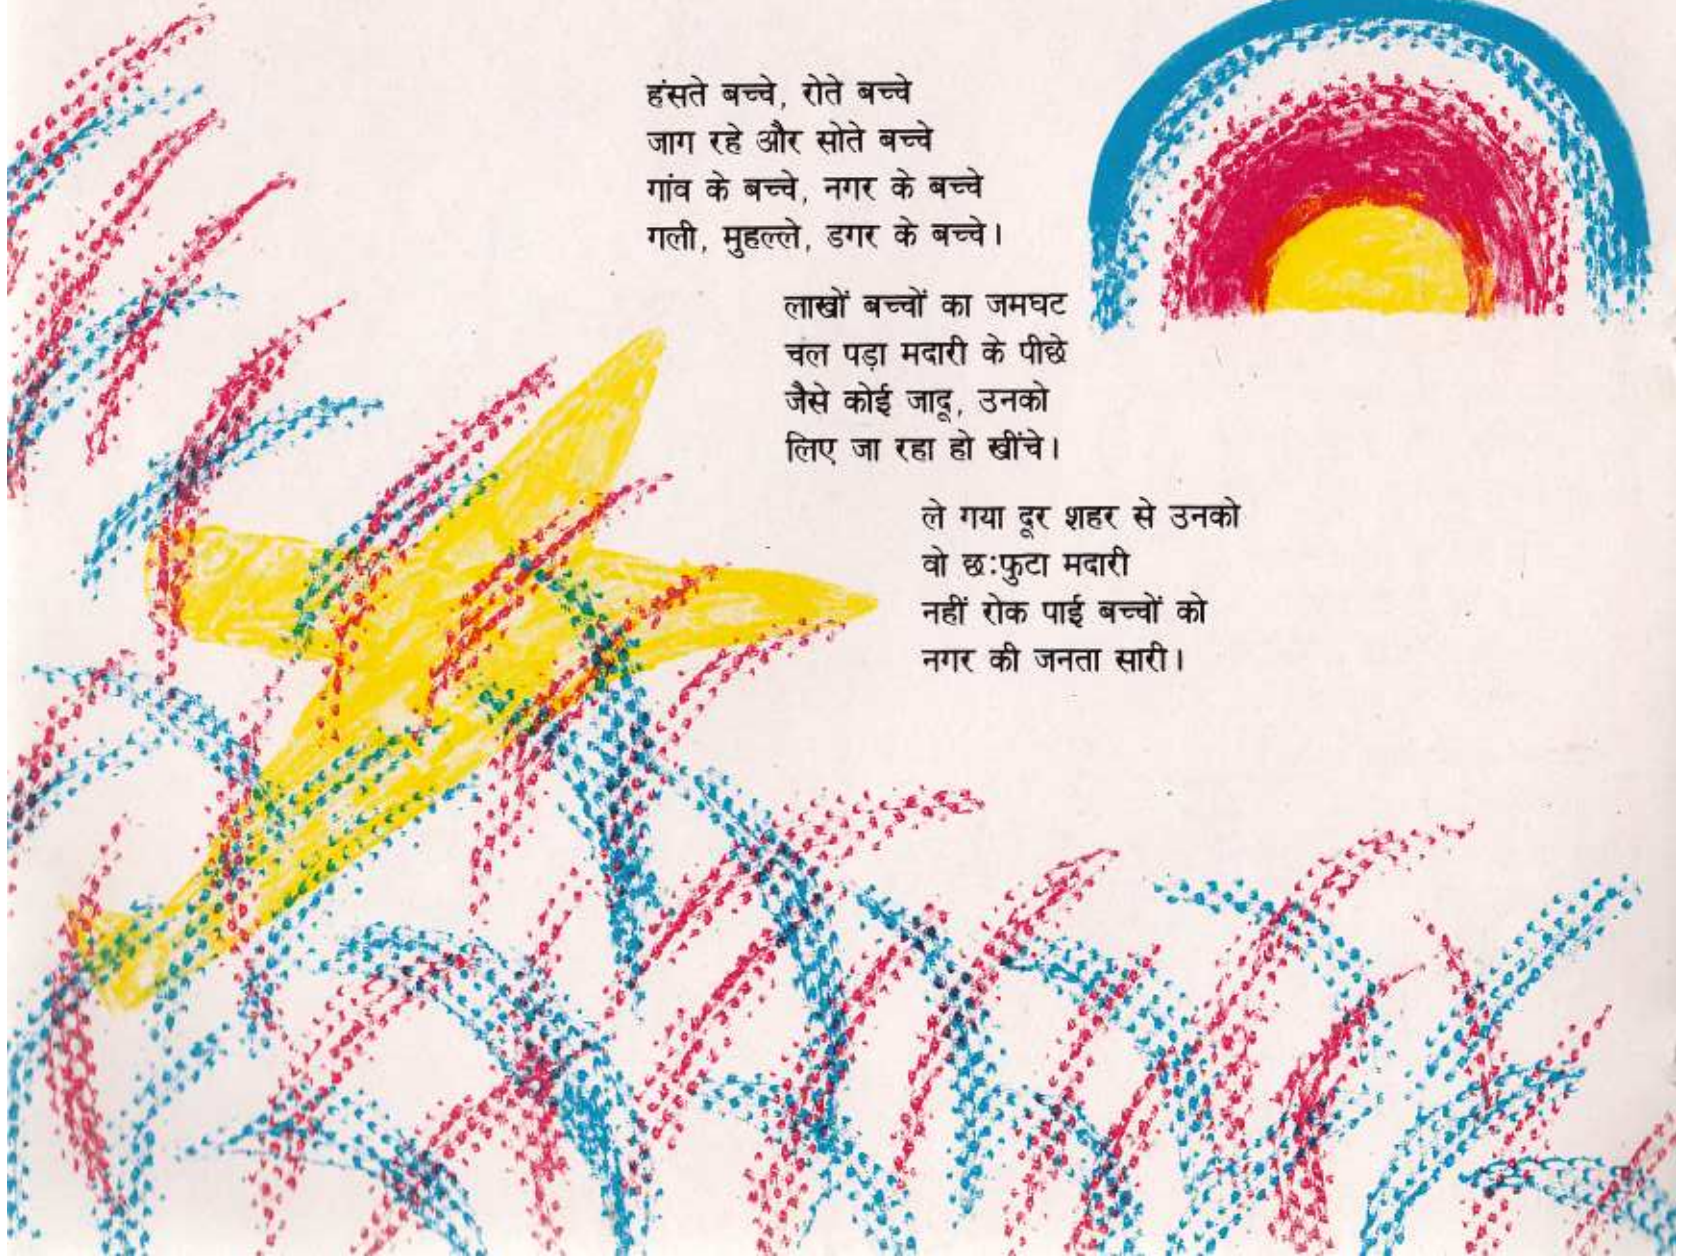 हंसते बच्चे, रोते बच्चे
जाग रहे और सोते बच्चे
गांव के बच्चे, नगर के बच्चे
गली, मुहल्ले, डगर के बच्चे।
लाखों बच्चों का जमघट
चल पड़ा मदारी के पीछे
जैसे कोई जादू, उनको
लिए जा रहा हो खींचे।
ले गया दूर शहर से उनको
वो छ:फुटा मदारी
नहीं रोक पाई बच्चों को
नगर की जनता सारी।